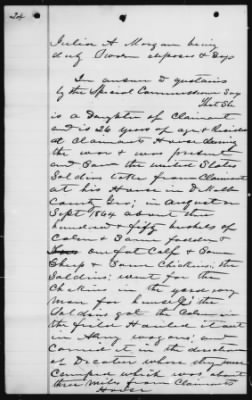 24
Julia A Morgan being
duly Sworn deposes & Says
In answer to questions
by the Special Commissioner Say
that She
is a Daughter of Claimant
and is 26 years of age & Resided
at Claimants House during
the war & was present
and Saw the United States
Soldiers take from Claimant
at his House in DeKalb
County Geo; in august or
Sept 1864 about three
hundred & fifty bushels of
Corn & Some fodder &
one fat Calf & Some
Sheep & Some Chickens; the
Soldiers went for the
Chickens in the yard every
man for himself; the
Soldiers got the Corn in
the field Hauled it out
in Army wagons; and
Carried it in the direction
of Decatur where they were
Camped which was about
three Miles from Claimants
House